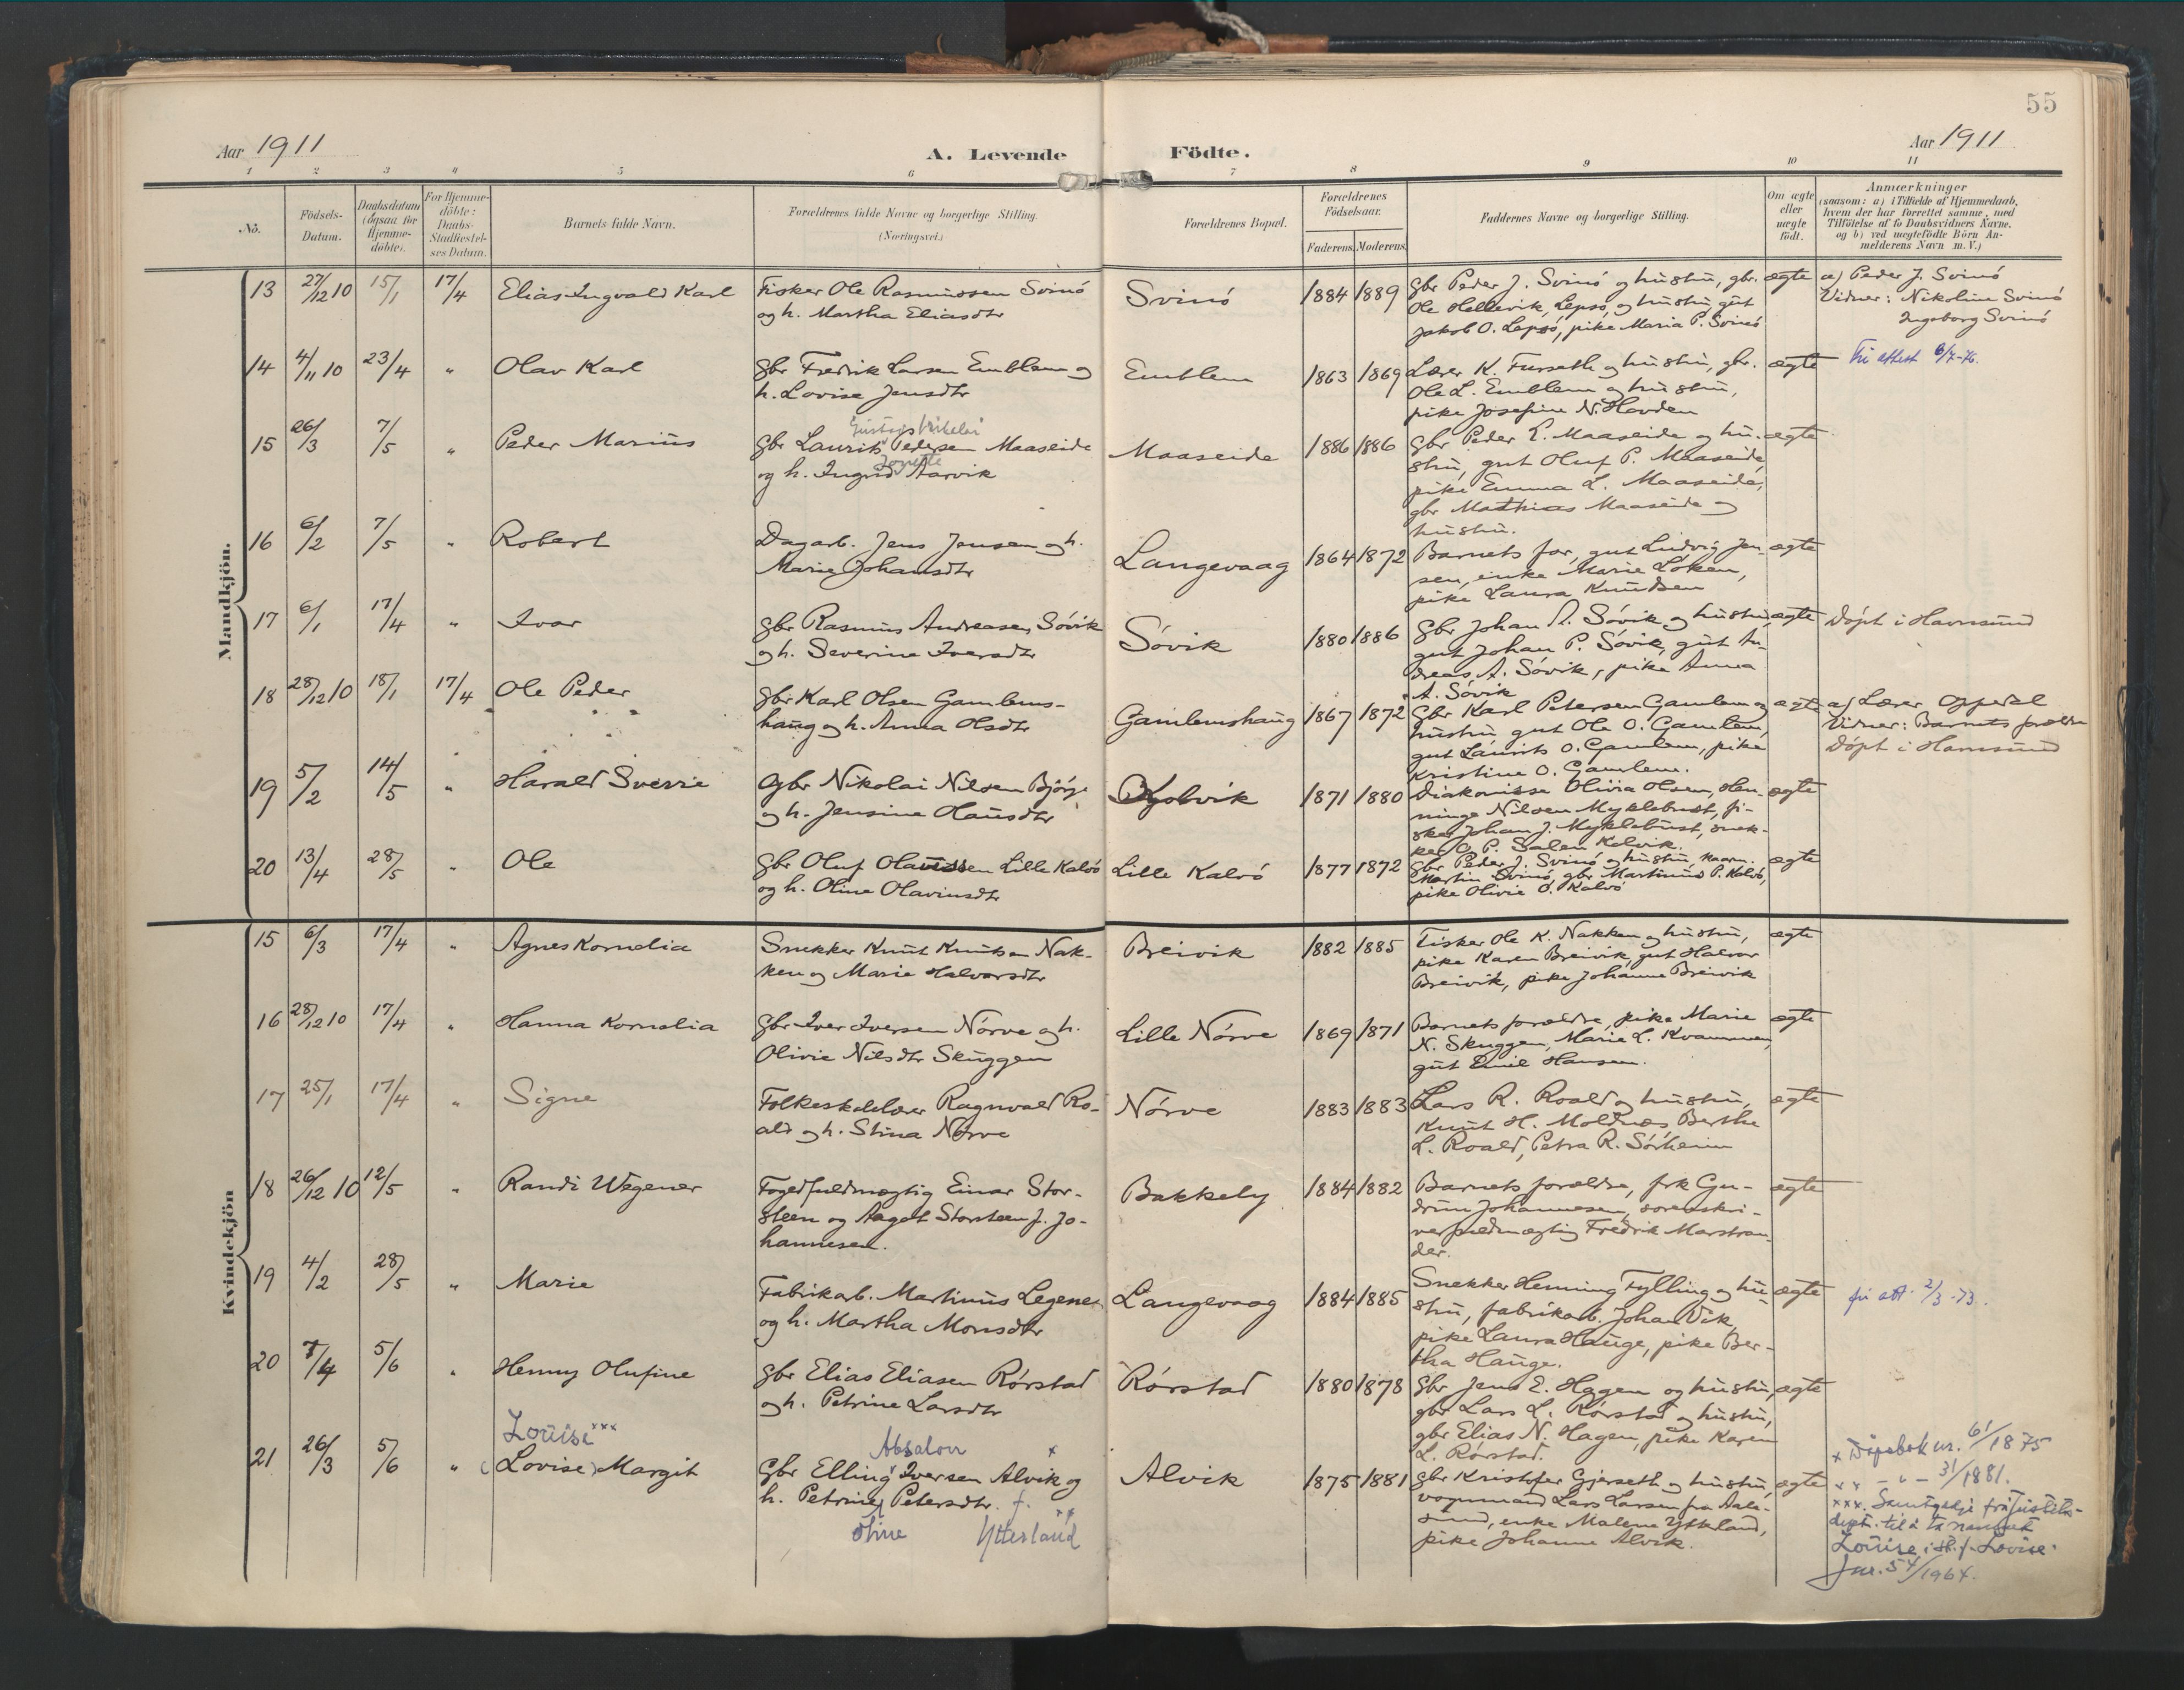 55
Aar 1911
A. Levende Födte.
Aar 1911
1 2 3 4 5 6 7 8 9 10 11
No.
Födsels-
Datum.
Daabsdatum
(ogsaa for
Hjemme-
döbte).
For Hjemme-
döbte:
Daabs-
Stadfæstel-
ses Datum.
Barnets fulde Navn.
Forældrenes fulde Navne og borgerlige Stilling.
(Næringsvei.)
Forældrenes Bopæl.
Forældrenes
Födselsaar.
Faderens. Moderens.
Faddernes Navne og borgerlige Stilling.
Om ægte
eller
uægte
født.
Anmærkninger
(saasom: a) i Tilfælde af Hjemmedaab,
hvem der har forrettet samme, med
Tilföielse af to Daabsvidners Navne,
og b) ved uægtefödte Börn An-
melderens Navn m. V.)
Mandkjön.
13 27/12 10 15/1 17/4 Elias Ingvald Karl
Fisker Ole Rasmussen Svinö
og h. Martha Eliasdtr
Svinö 1884 1889
Gbr Peder J. Svinö og hustru, gbr.
Ole Hellevik, Lepsö, og hustru, gut
Jakob O. Lepsö, pike Maria P. Svinö
ægte
a) Peder J. Svinö
Vidner: Nikoline Svinö
Ingeborg Svinö
14 4/11 10 23/4 " Olav Karl
Gbr Fredrik Larsen Emblem og
h. Lovise Jensdtr
Emblem 1863 1869
Lærer K. Furseth og hustru, gbr.
Ole L. Emblem og hustru,
pike Josefine N. Hovden
ægte
Fri attest 6/7-76.
15 26/3 7/5 " Peder Marius
Gustav Mikelai
Gbr Laurits Pedersen Maaseide
Jonette
og h. Ingrid Aarvik
Maaseide 1886 1886
Gbr Peder L. Maaseide og hu-
stru, gut Oluf P. Maaseide,
pike Emma L. Maaseide,
gbr Mathias Maaseide og
hustru.
ægte
16 6/2 7/5 " Robert
Dagarb. Jens Jensen og h.
Marie Johansdtr
Langevaag 1864 1872
Barnets far, gut Ludvig Jen-
sen, enke Marie Löken,
pike Laura Knudsen
ægte
17 6/1 17/4 " Ivar
Gbr Rasmus Andreasen Sövik
og h. Severine Iversdtr
Sövik 1880 1886
Gbr Johan A. Sövik og hustru,
gut Johan P. Sövik, gut An-
dreas A. Sövik, pike Anna
A. Sövik
ægte
Döpt i Havnsund
18 28/12 10 18/1 17/4 Ole Peder
Gbr Karl Olsen Gamlems-
haug og h. Anna Olsdtr
Gamlemshaug 1867 1872
Gbr Karl Petersen Gamlem og
hustru, gut Ole O. Gamlem,
gut Laurits O. Gamlem, pike
Kristine O. Gamlem.
ægte
a) Lærer Opperdal
Vidner: Barnets forældre
Döpt i Hamsund
19 5/2 14/5 " Harald Sverre
Gbr Nikolai Nilsen Björge
og h. Jensine Hansdtr
Kjolvik 1871 1880
Diakonisse Olivia Olsen, Hen-
ninge Nilsen Myklebust, fi-
sker Johan J. Myklebust, snek-
ker O. P. Salen Kolvik.
ægte
20 13/4 28/5 " Ole
Gbr Oluf Olaussen Lille Kalvö
og h. Oline Olavinsdtr
Lille Kalvö 1877 1872
Gbr Peder J. Svinö og hustru, Kaarn.
Martin Svinö, gbr Martinus P. Kalvö,
pike Olivie O. Kalvö
ægte
Kvindekjön
15 6/3 17/4 " Agnes Kornelia
Snekker Knut Knutsen Nak-
ken og Marie Halvorsdtr
Breivik 1882 1885
Fisker Ole K. Nakken og hustru,
pike Karen Breivik, gut Halvor
Breivik, pike Johanne Breivik
ægte
16 28/12 10 17/4 " Hanna Kornelia
Gbr Iver Iversen Nörve og h.
Olivie Nilsdtr Skuggen
Lille Nörve 1869 1871
Barnets forældre, pike Marie
N. Skuggen, Marie L. Kvammen,
gut Emil Hansen.
ægte
17 25/1 17/4 " Signe
Folkeskolelærer Ragnvald Ro-
ald og h. Stina Nörve
Nörve 1883 1883
Lars R. Roald og hustru,
Knut H. Moldnæs, Berthe
L. Roald, Petra R. Sörheim
ægte
18 26/12 10 12/5 " Randi Wegener
Fogedfuldmægtig Einar Stor-
steen og Aagot Storsteen f. Jo-
hannesen.
Bakkely 1884 1882
Barnets forældre, frk Gu-
drun Johannesen, sorenskri-
verfuldmægtig Fredrik Marstran-
der.
ægte
19 4/2 28/5 " Marie
Fabrikarb. Martinus Legenes
og h. Martha Monsdtr
Langevaag 1884 1885
Snekker Henning Fylling og hu-
stru, fabrikarb. Johan Vik,
pike Laura Hauge, pike Ber-
tha Hauge.
ægte
fri att. 2/3-73.
20 7/4 5/6 " Henny Olufine
Gbr Elias Eliasen Rörstad
og h. Petrine Larsdtr
Rörstad 1880 1878
Gbr Jens E. Hagen og hustru,
gbr Lars L. Rörstad og hustru,
gbr Elias N. Hagen, pike Karen
L. Rörstad.
ægte
Louise xxx
21 26/3 5/6 " (Lovise) Margit
Absalon x
Gbr Elling Iversen Alvik og
h. Petrine Petersdtr. f.
Stine Ytterland xx
Alvik 1875 1881
Gbr Kristofer Gjerseth og hustru,
vognmand Lars Larsen fra Aale-
sund, enke Malene Ytterland,
pike Johanne Alvik.
ægte
x Döpebok nr. 61/1875
xx - " - 31/1881.
xxx. Samtykkje frå Justits-
dept. til å ta namnet
Louise i st. f. Lovise.
Jnr. 54/1964.